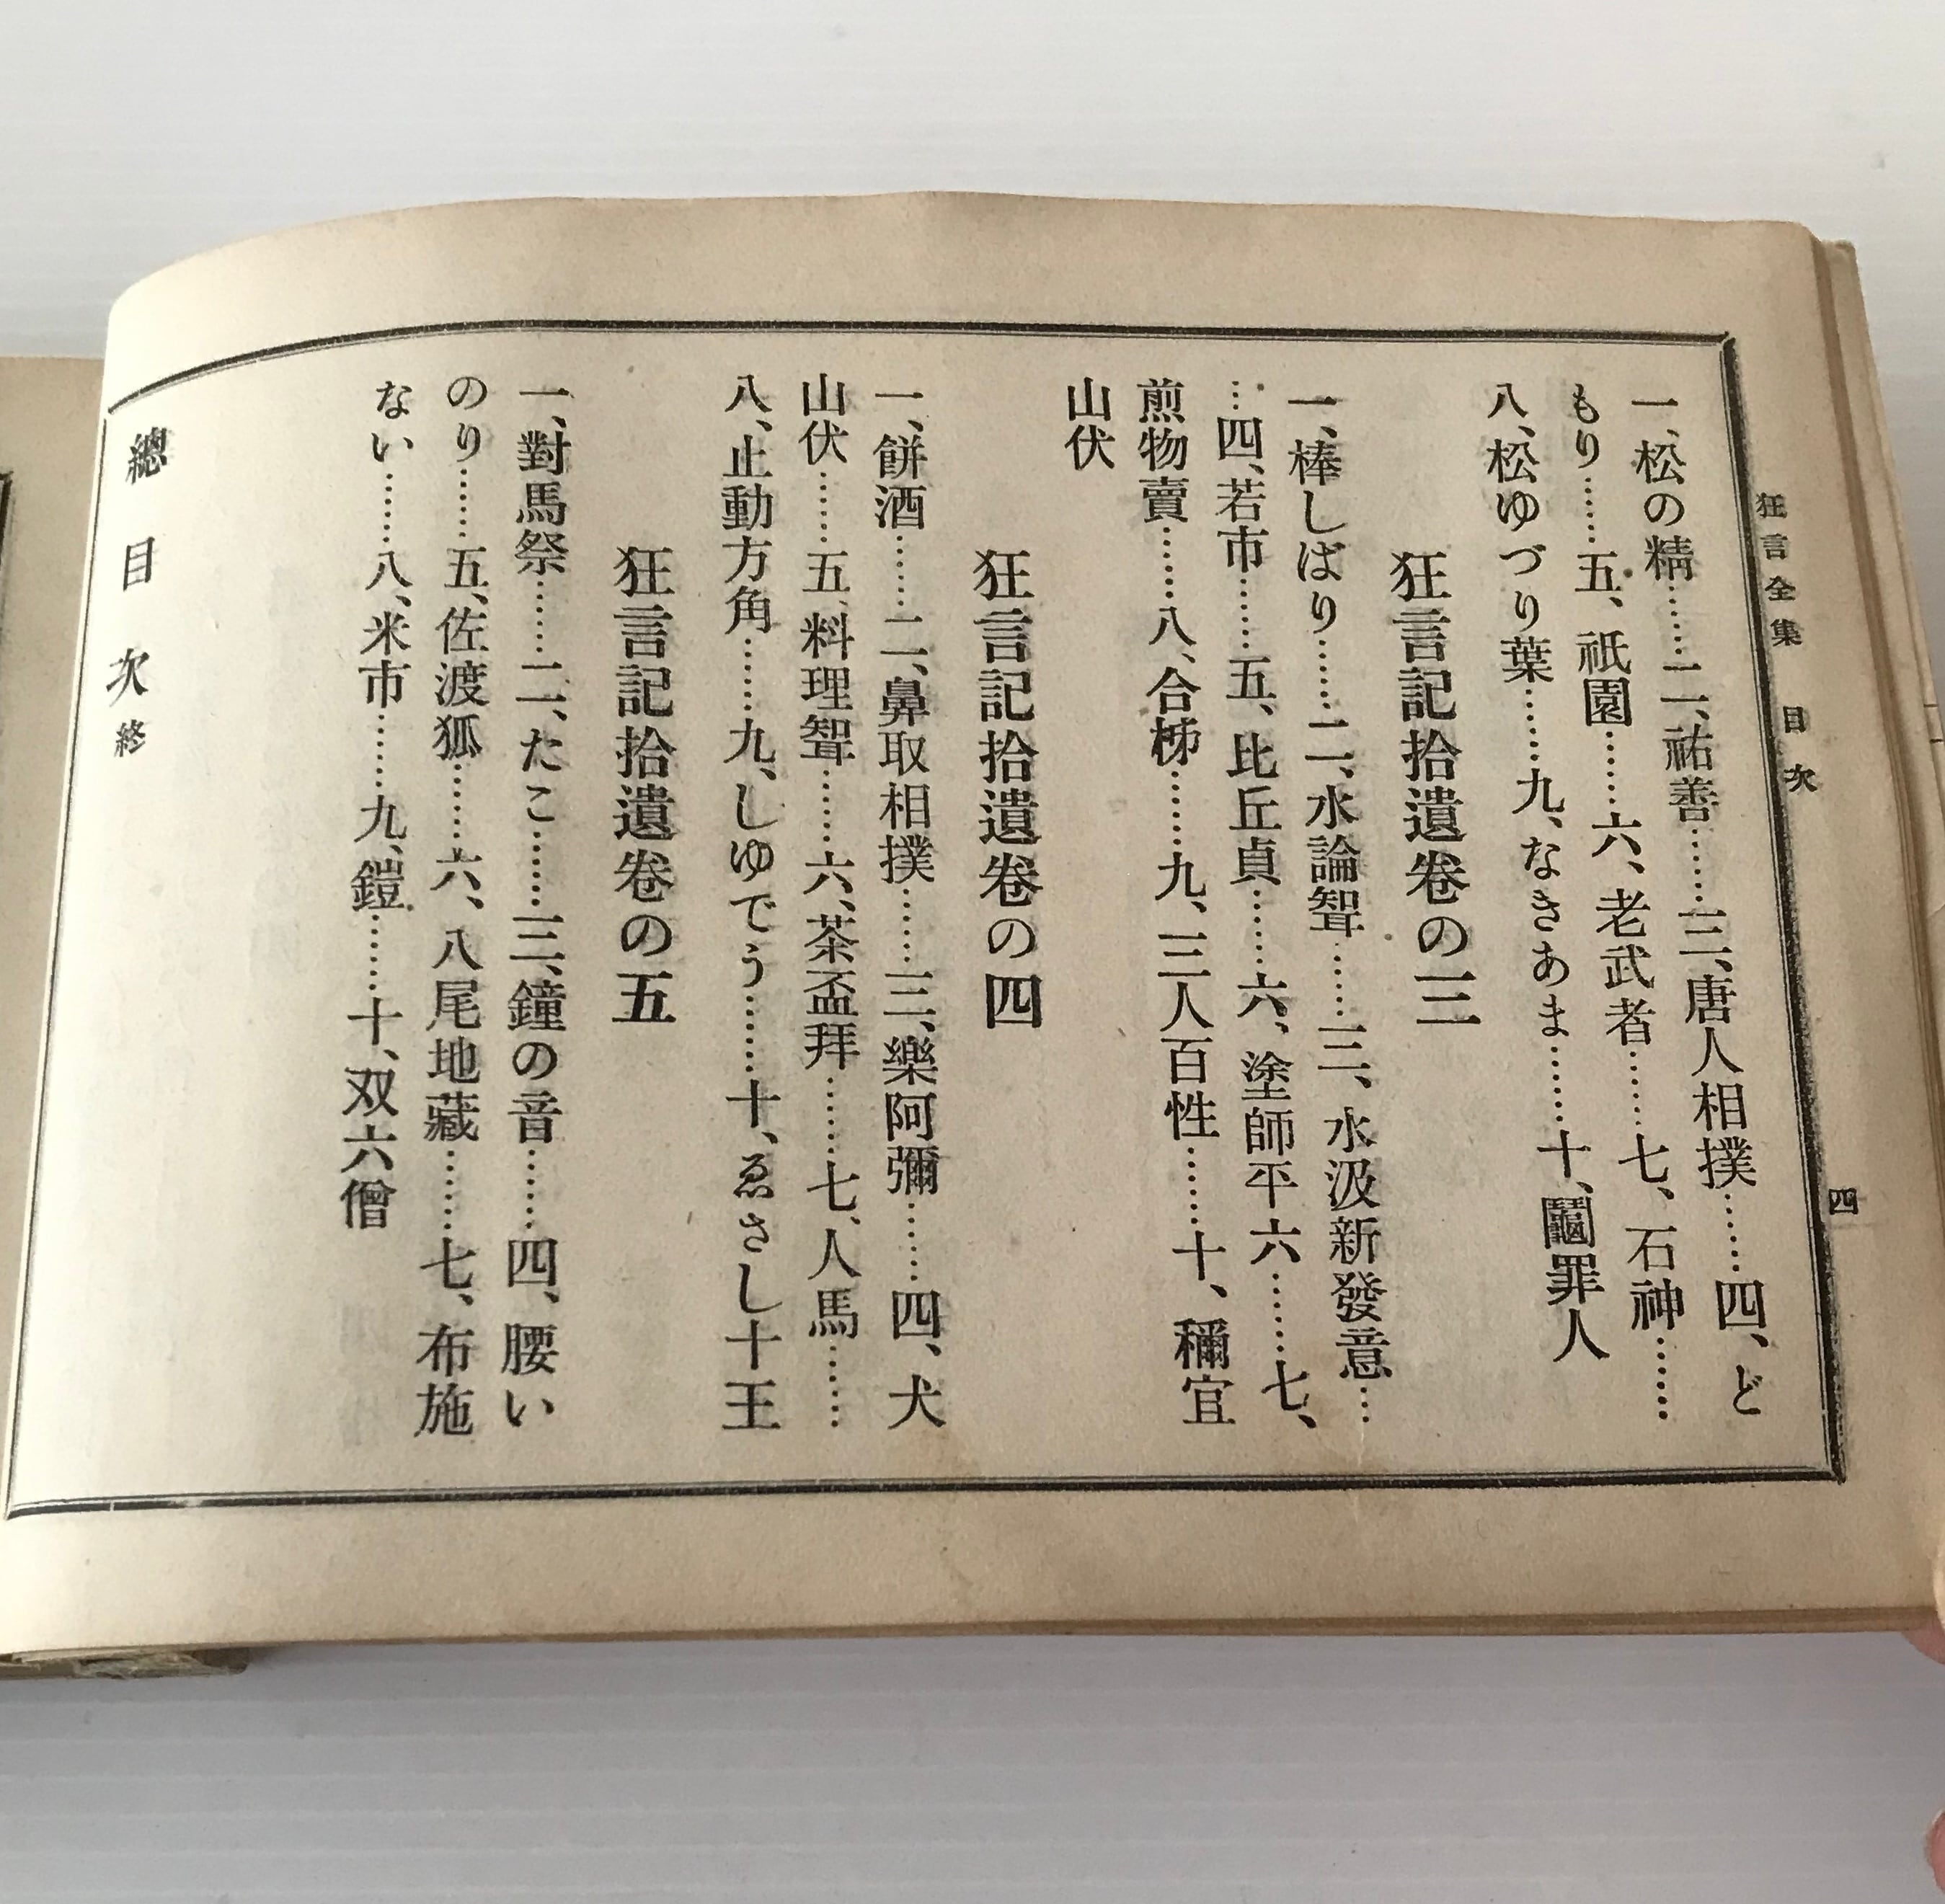 狂言全集　目次
四
一、松の精……二、祐善……三、唐人相撲……四、ど
もり……五、祇園……六、老武者……七、石神……
八、松ゆづり葉……九、なきあま……十、鬮罪人
狂言記拾遺卷の三
一、棒しばり……二、水論聟……三、水汲新發意…
…四、若市……五、比丘貞……六、塗師平六……七、
煎物賣……八、合柹……九、三人百性……十、禰宜
山伏
狂言記拾遺卷の四
一、餅酒……二、鼻取相撲……三、樂阿彌……四、犬
山伏……五、料理聟……六、茶盃拜……七、人馬……
八、止動方角……九、しゆでう……十、ゑさし十王
狂言記拾遺卷の五
一、對馬祭……二、たこ……三、鐘の音……四、腰い
のり……五、佐渡狐……六、八尾地藏……七、布施
ない……八、米市……九、鎧……十、双六僧
總目次終